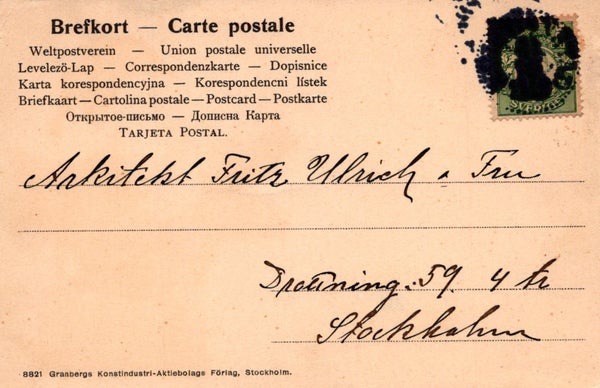 Brefkort — Carte postale
Weltpostverein — Union postale universelle
Levelezö-Lap — Correspondenzkarte — Dopisnice
Karta korespondencyjna — Korespondencni lístek
Briefkaart — Cartolina postale — Postcard — Postkarte
Открытое-письмо — Дописна Карта
TARJETA POSTAL.
SVERIGE
Arkitekt Fritz Ulrich o Fru
Drottning. 59. 4 tr
Stockholm
8821 Granbergs Konstindustri-Aktiebolags Förlag, Stockholm.